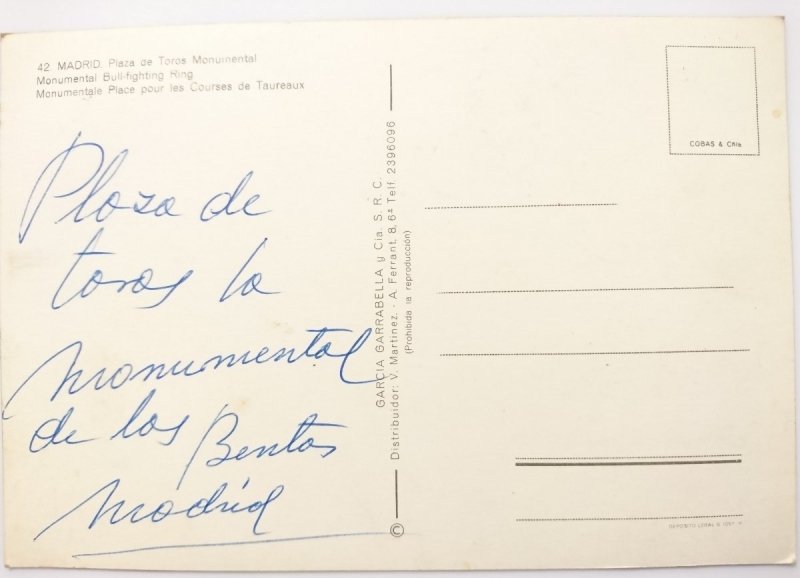 42. MADRID. Plaza de Toros Monumental
Monumental Bull-fighting Ring
Monumentale Place pour les Courses de Taureaux
Plaza de
toros la
monumental
de las Bentas
Madrid
GARCIA GARRABELLA y Cia. S. R. C.
Distribuidor: V. Martinez. - A. Ferrant, 8, 6ª Telf. 2396096
(Prohibida la reproducción)
©
COBAS & Cñía
DEPOSITO LEGAL